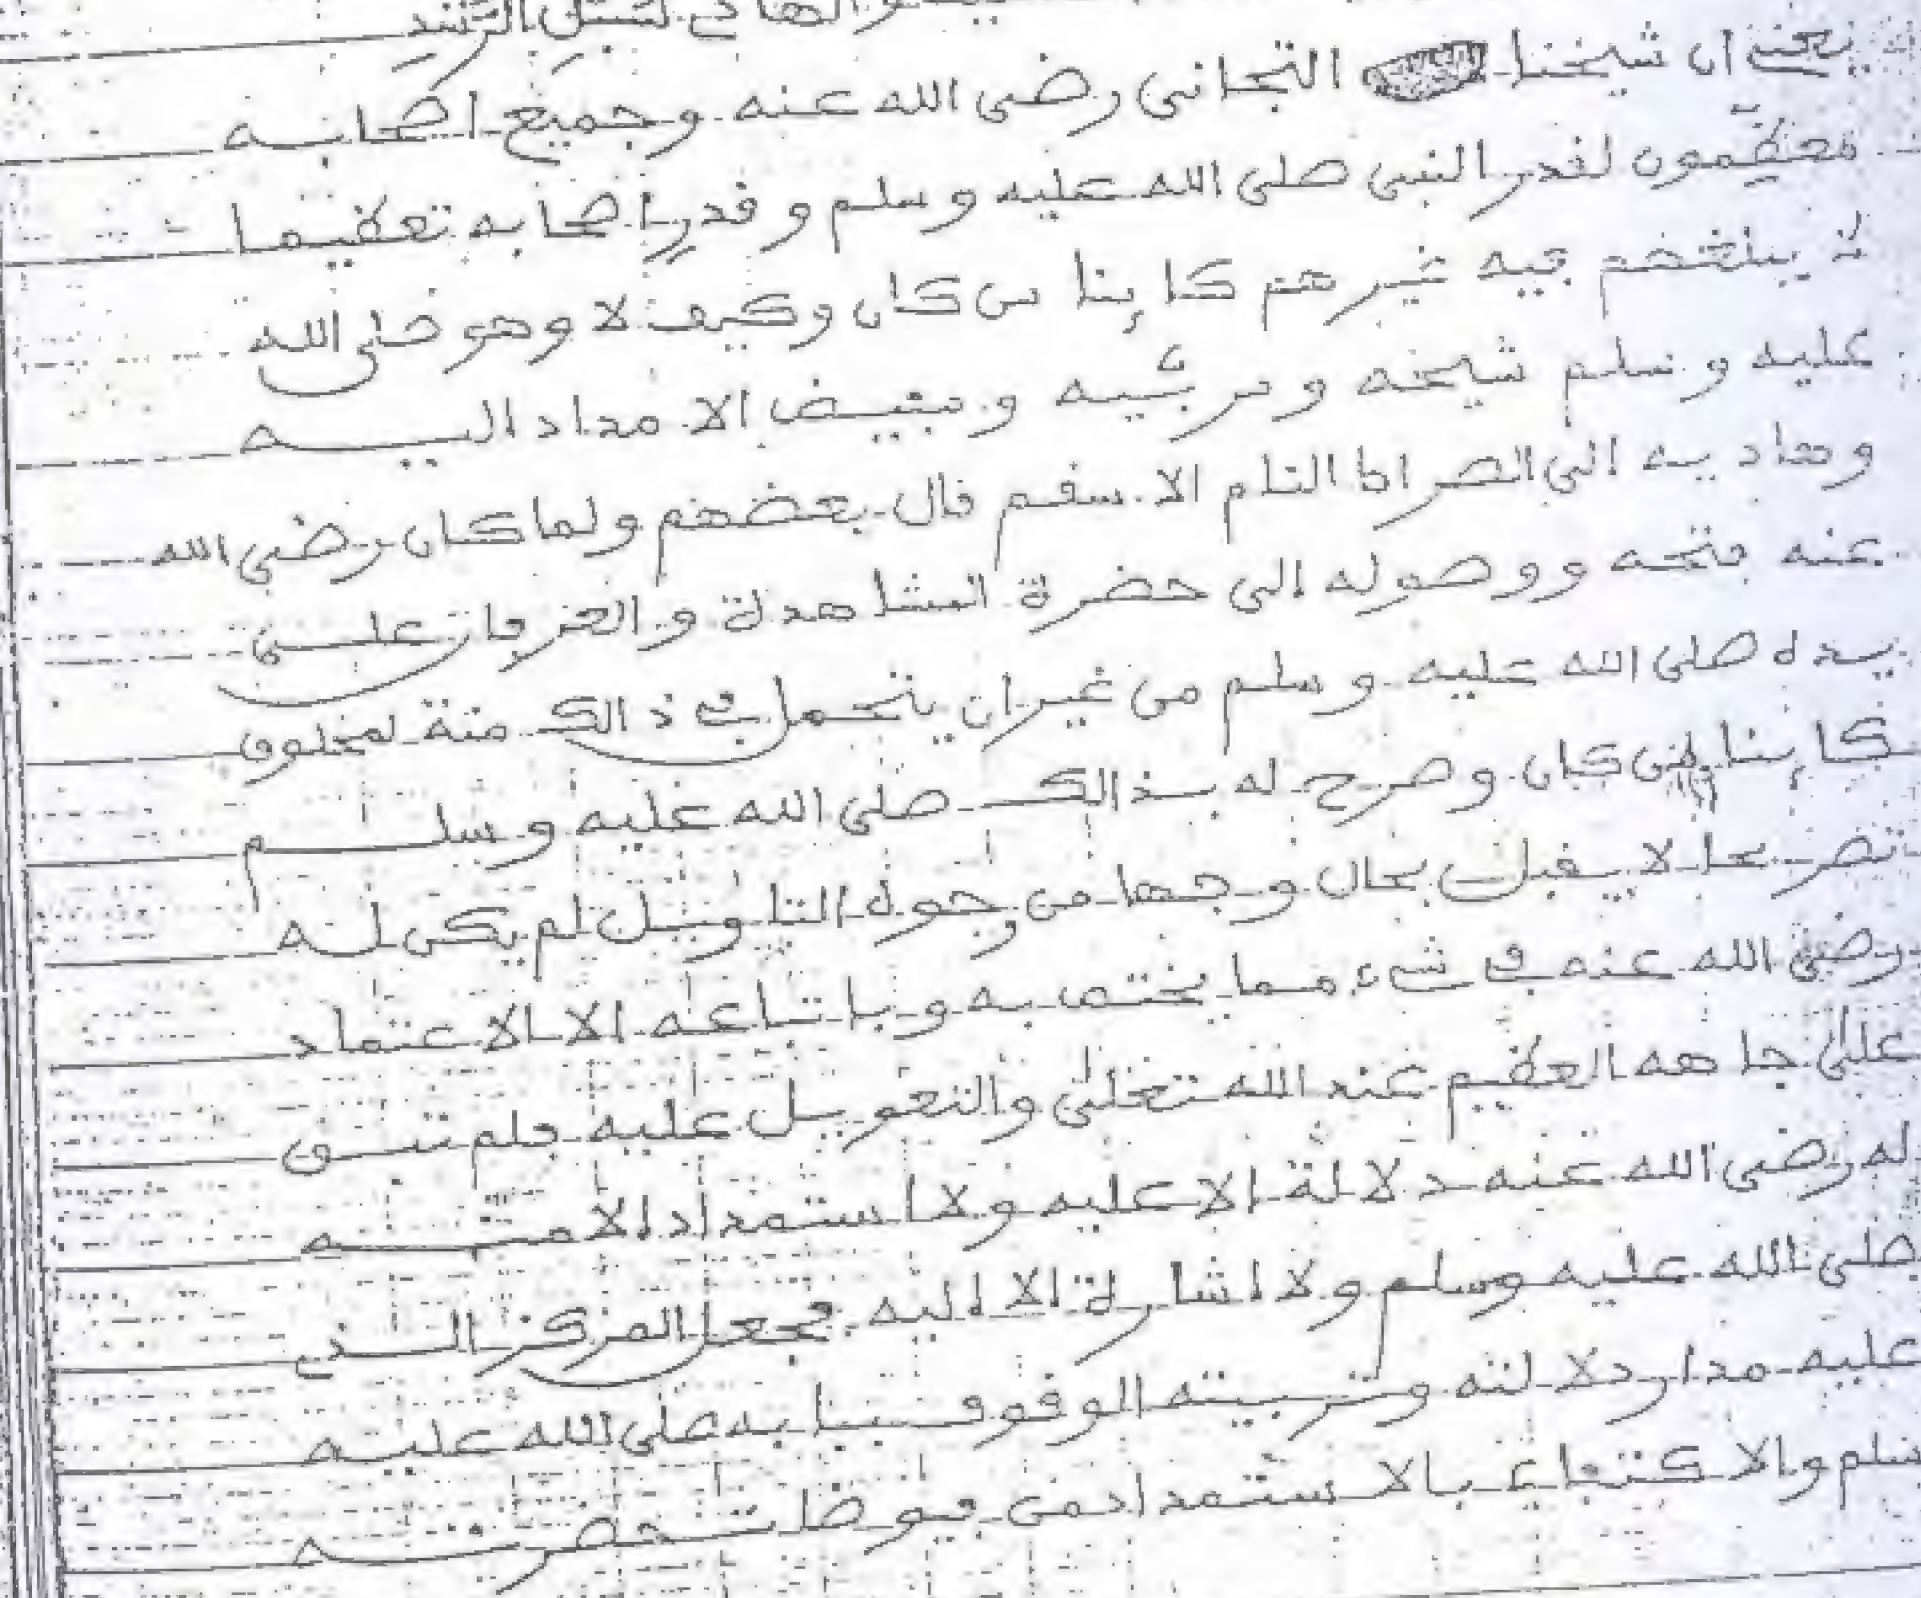 والهادي لسبل الرشد
يعني ان شيخنا التجاني رضى الله عنه وجميع اصحابه
معظِّمون لقدر النبي صلى الله عليه وسلم وقدر اصحابه تعظيما
لا يبلغهم فيه غيرهم كاينا من كان وكيف لا وهو صلى الله
عليه وسلم شيخه ومربّيه ومفيض الامداد اليه
وهاديه الى الصراط التام الاسقم قال بعضهم ولما كان رضي الله
عنه فتحه ووصوله الى حضرة المشاهدة والعرفان على
يده صلى الله عليه وسلم من غير ان يتحمل في ذالك منة لمخلوق
كاينا من كان وصرح له بذالك صلى الله عليه وسلم
تصريحا لا يقبل بحال وجها من وجوه التاويل لم يكن له
رضي الله عنه في شيء مما يختص به وباتباعه الا الاعتماد
على جاهه العظيم عند الله تعلى والتعويل عليه فلم تبق
له رضى الله عنه دلالة الا عليه ولا استمداد الا منه
صلى الله عليه وسلم ولا اشارة الا اليه فجعل المركز الذي
عليه مدار دلالته وتربيته الوقوف بنا به صلى الله عليه
وسلم والاكتفاء بالاستمداد من فيوضات حضرته